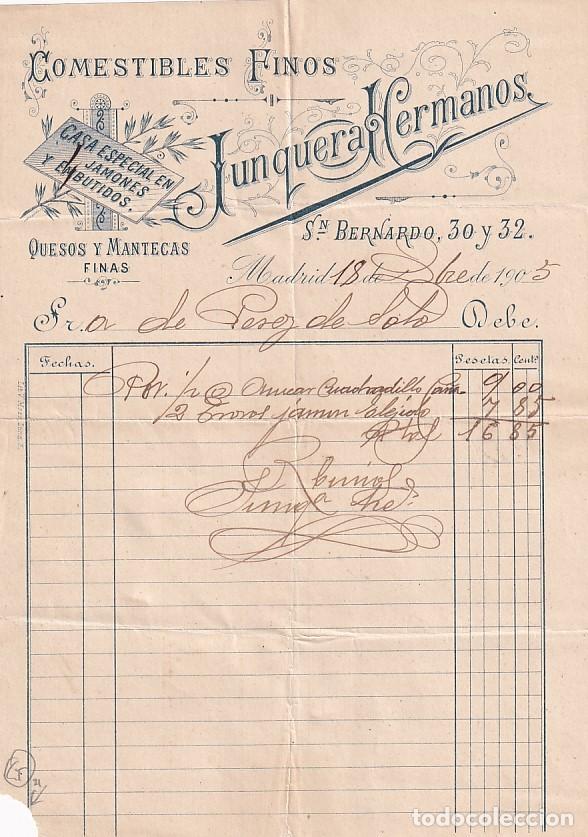 COMESTIBLES FINOS
Junquera Hermanos.
CASA ESPECIAL EN
JAMONES
Y EMBUTIDOS.
QUESOS Y MANTECAS
FINAS
Sn. BERNARDO, 30 y 32.
Madrid 18 de Obre de 1905
Sr.a de Perez de Soto Debe.
Fechas. Pesetas. Cents.
Por 1/2 @ Azucar Cuadradillo Caña 9 00
2 Trozos jamon 7 85
16 85
Recibimos
Junqa Hos
todocoleccion